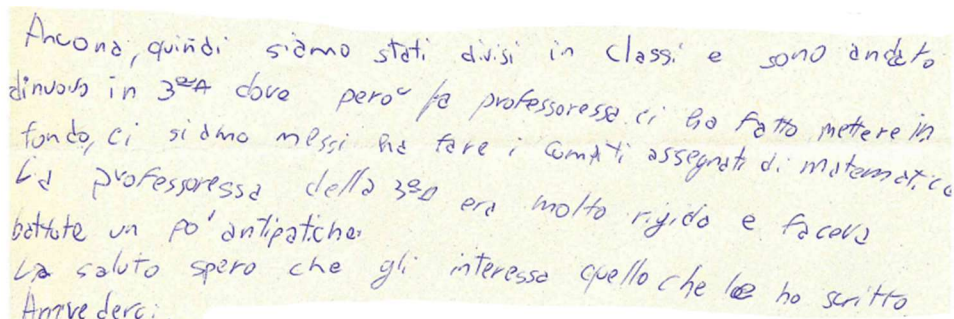 Ancona, quindi siamo stati divisi in classi e sono andato
dinuovo in 3ªA dove però la professoressa ci ha fatto mettere in
fondo, ci siamo messi ha fare i compiti assegnati di matematica
La professoressa della 3ªA era molto rigida e faceva
battute un po' antipatiche.
La saluto spero che gli interessa quello che le ho scritto.
Arrivederci